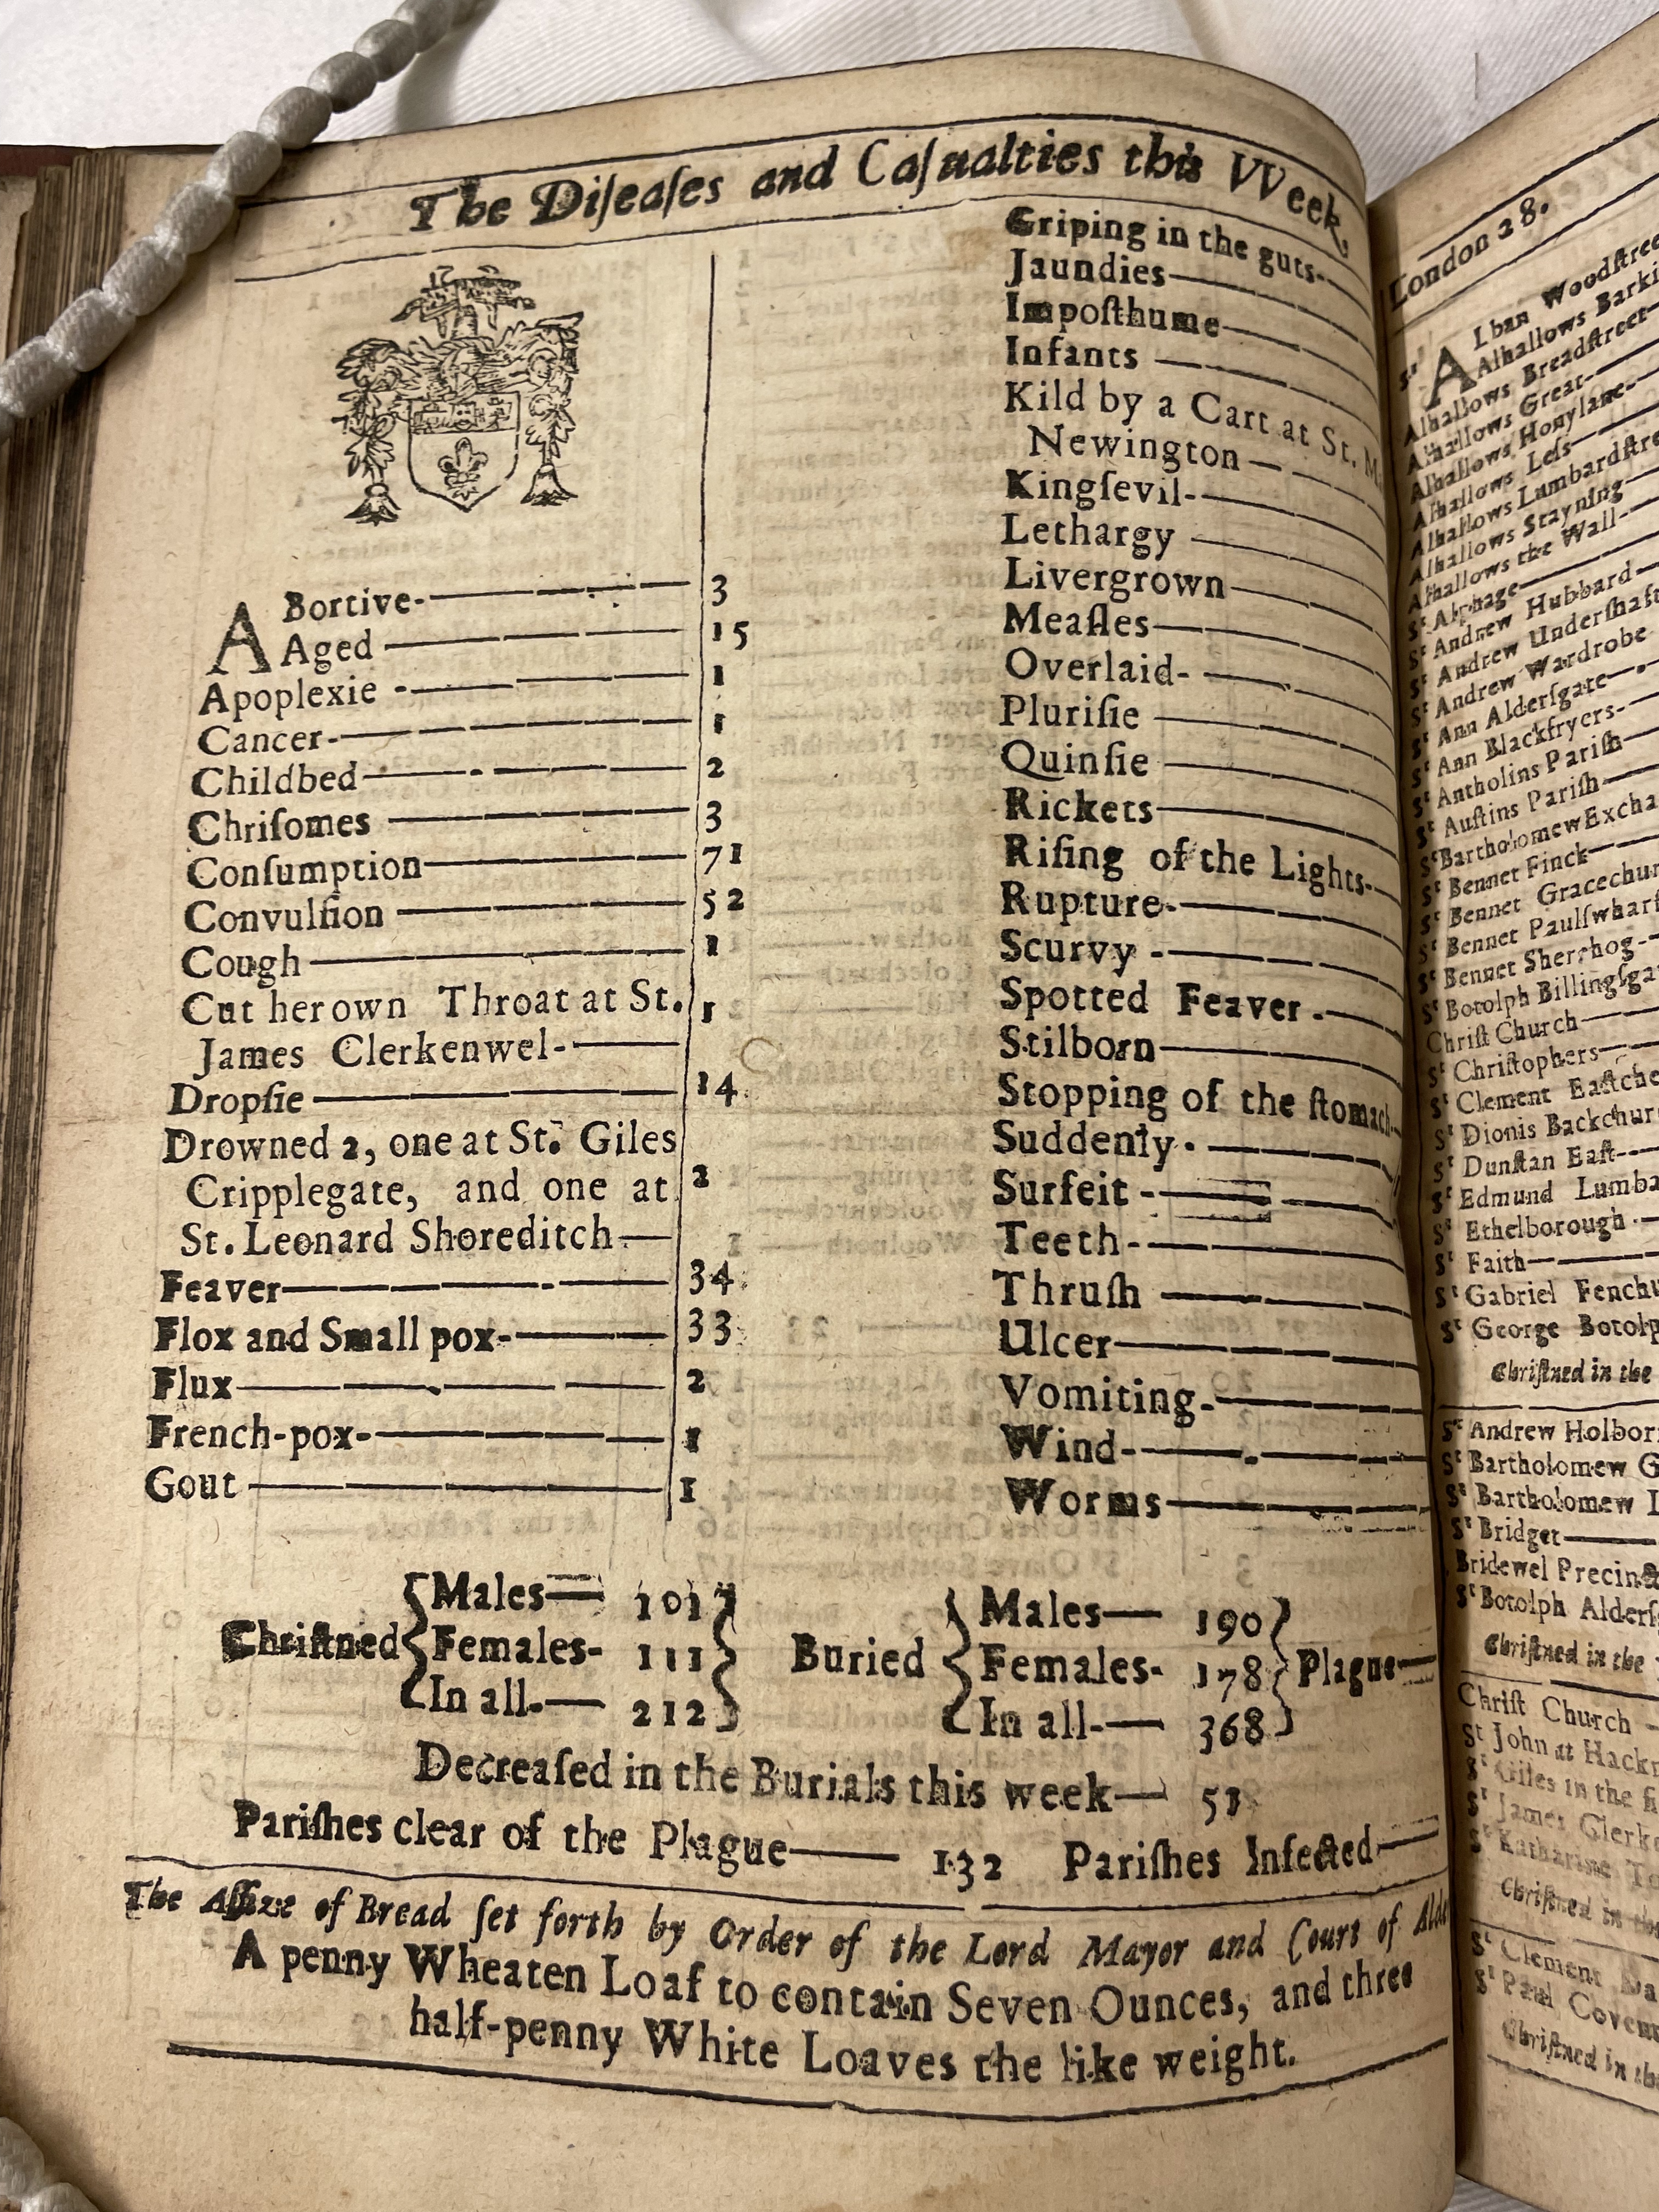 The Diſeaſes and Caſualties this VVeek,
ABortive- 3
Aged 15
Apoplexie - 1
Cancer- 1
Childbed 2
Chriſomes 3
Conſumption 71
Convulſion 52
Cough 1
Cut her own Throat at St.
James Clerkenwel- 1
Dropſie 14
Drowned 2, one at St. Giles
Cripplegate, and one at 2
St. Leonard Shoreditch
Feaver 34
Flox and Small pox- 33
Flux 2
French-pox- 1
Gout 1
Griping in the guts-
Jaundies
Impoſthume
Infants
Kild by a Cart at St. M
Newington
Kingſevil-
Lethargy
Livergrown
Meaſles
Overlaid-
Pluriſie
Quinſie
Rickets
Riſing of the Lights-
Rupture-
Scurvy -
Spotted Feaver -
Stilborn
Stopping of the ſtomach
Suddenly
Surfeit -
Teeth-
Thruſh
Ulcer
Vomiting-
Wind-
Worms
Chriſtned Males— 101 Buried Males— 190
Females- 111 Females- 178 Plague—
In all.— 212 In all-— 368
Decreaſed in the Burials this week— 51
Pariſhes clear of the Plague—— 132 Pariſhes Infected—
The Aſſize of Bread ſet forth by Order of the Lord Mayor and Court of Alde
A penny Wheaten Loaf to contain Seven Ounces, and three
half-penny White Loaves the like weight.
London 28.
St ALban Woodſtree
Alhallows Barki
Alhallows Breadſtreet
Alhallows Great
Alhallows Honylane
Alhallows Leſs
Alhallows Lumbardſtre
Alhallows Stayning
Alhallows the Wall
St Alphage
St Andrew Hubbard
St Andrew Underſhaft
St Andrew Wardrobe
St Ann Alderſgate
St Ann Blackfryers
St Antholins Pariſh
St Auſtins Pariſh
St Bartholomew Excha
St Bennet Finck
St Bennet Gracechur
St Bennet Paulſwharf
St Bennet Sherehog
St Botolph Billingſga
Chriſt Church
St Chriſtophers
St Clement Eaſtche
St Dionis Backchur
St Dunſtan Eaſt
St Edmund Lumba
St Ethelborough
St Faith
St Gabriel Fenchu
St George Botolp
Chriſtned in the
St Andrew Holbor
St Bartholomew G
St Bartholomew L
St Bridget
Bridewel Precinct
St Botolph Alderſ
Chriſtned in the
Chriſt Church
St John at Hackn
St Giles in the fi
St James Clerke
St Katharine To
Chriſtned in the
St Clement Da
St Paul Coven
Chriſtned in the